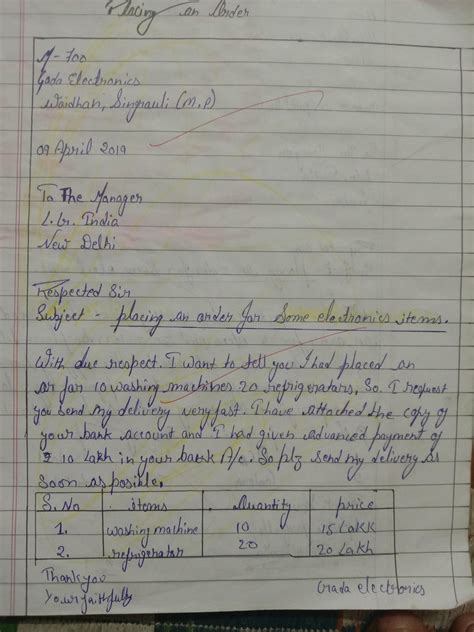 Placing an Order
M-700
Gada Electronics
Waidhan, Singrauli (M.P)
09 April 2019
To The Manager
L.G. India
New Delhi
Respected Sir
Subject - placing an order for Some electronics items.
With due respect. I want to tell you I had placed an
or for 10 washing machines 20 refrigerators, So. I request
you send my delivery very fast. I have attached the copy of
your bank account and I had given advanced payment of
₹ 10 Lakh in your bank A/c. So plz send my delivery as
soon as posible.
S. No items Quantity price
1. washing machine 10 15 Lakh
2. refrigerator 20 20 Lakh
Thank you
Your faithfully Gada electronics